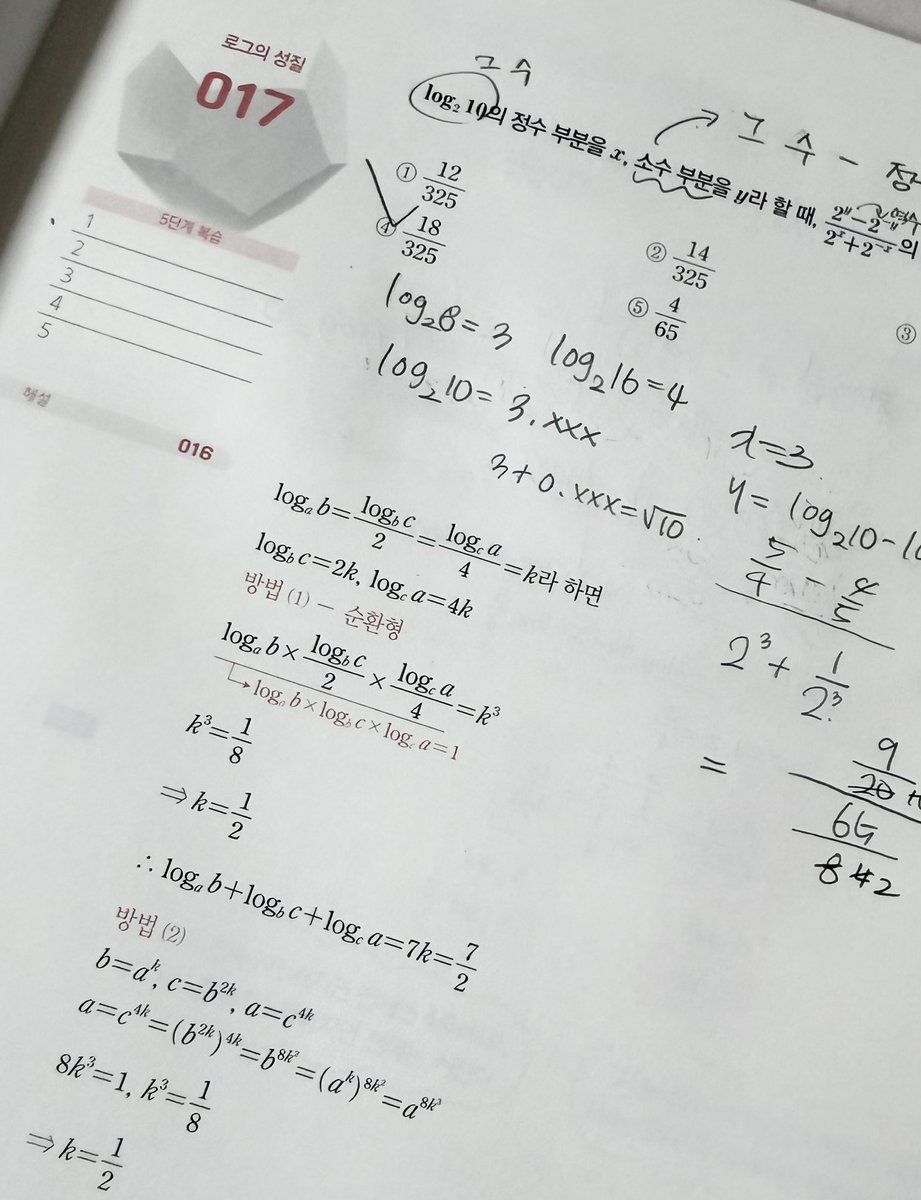 로그의 성질
017
그 수
log₂ 10의 정수 부분을 x, 소수 부분을 y라 할 때, (2^y − 2^−y)/(2^x + 2^−x)의
→ 그 수 −
① 12/325
② 14/325
③
④ 18/325
⑤ 4/65
5단계 복습
1
2
3
4
5
log₂8 = 3 log₂16 = 4
log₂10 = 3.xxx
3 + 0.xxx = √10
x = 3
y = log₂10 −
5/4 − 4/5
2³ + 1/2³
=
9
20
65
8
해설
016
logₐ b = (log_b c)/2 = (log_c a)/4 = k라 하면
log_b c = 2k, log_c a = 4k
방법 (1) − 순환형
logₐ b × (log_b c)/2 × (log_c a)/4 = k³
logₐ b × log_b c × log_c a = 1
k³ = 1/8
⇒ k = 1/2
∴ logₐ b + log_b c + log_c a = 7k = 7/2
방법 (2)
b = a^k, c = b^2k, a = c^4k
a = c^4k = (b^2k)^4k = b^8k² = (a^k)^8k² = a^8k³
8k³ = 1, k³ = 1/8
⇒ k = 1/2